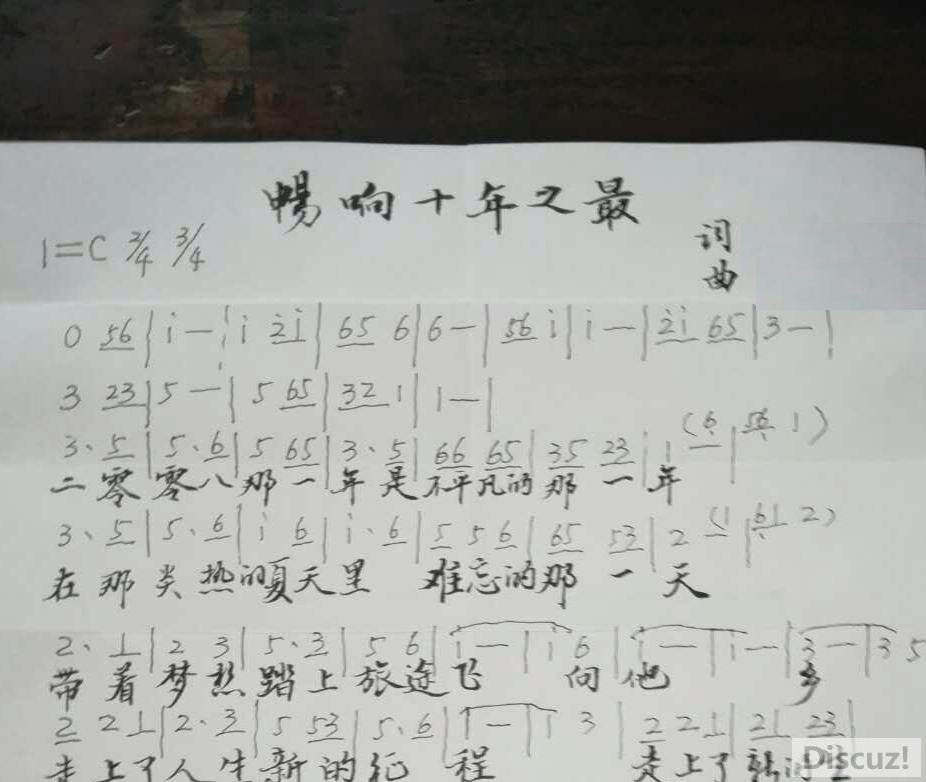 暢响十年之最
1=C 2/4 3/4
词
曲
0 56 | i — | i 2i | 65 6 | 6 — | 56 i | i — | 2i 65 | 3 — |
3 23 | 5 — | 5 65 | 32 1 | 1 — |
3. 5 | 5. 6 | 5 65 | 3. 5 | 66 65 | 35 23 | 1 (6 | 56 1)
二零零八那一年是不平凡的那一年
3. 5 | 5. 6 | i 6 | i. 6 | 5 5 6 | 65 53 | 2 (1 | 61 2)
在那炎热的夏天里 难忘的那一天
2. 1 | 2 3 | 5. 3 | 5 6 | i — | i 6 | i — | i — | 3 — | 3 5
带着梦想踏上旅途飞 向他 乡
2 2 1 | 2. 3 | 5 53 | 5. 6 | i — | i 3 | 2 2 1 | 21 23 |
走上了人生新的征 程 走上了
Discuz!